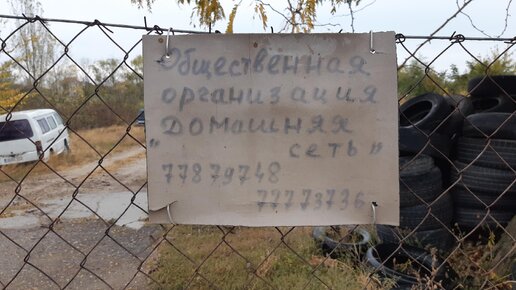 Общественная
организация
"Домашняя
сеть"
77879748
77773736